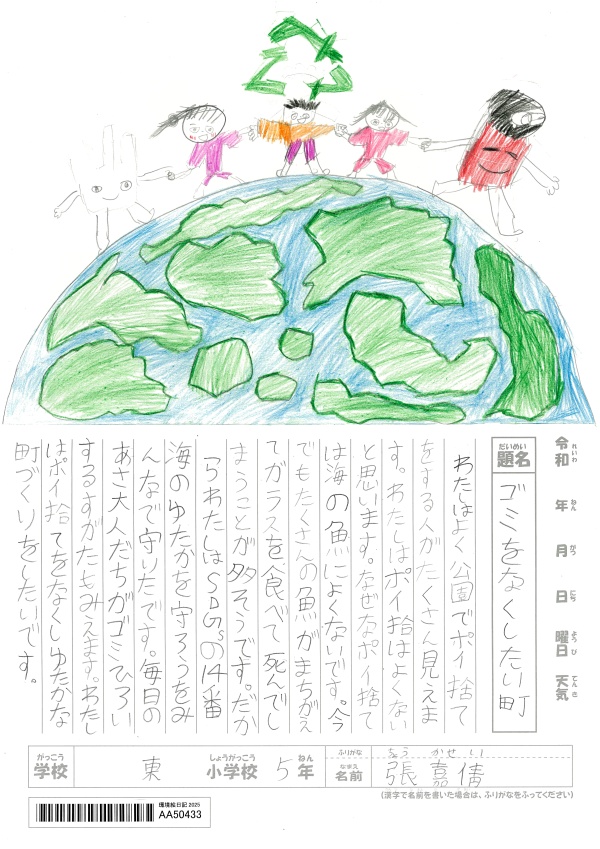 令和 年 月 日 曜日 天気
れいわ ねん がつ にち ようび てんき
だいめい
題名 ゴミをなくしたい町
わたしはよく公園でポイ捨て
をする人がたくさん見えま
す。わたしはポイ捨はよくない
と思います。なぜなポイ捨て
は海の魚によくないです。今
でもたくさんの魚がまちがえ
てガラスを食べて死んでし
まうことが多そうです。だか
らわたしはSDGsの14番
海のゆたかを守ろうをみ
んなで守りたです。毎日の
あさ大人たちがゴミひろい
するすがたもみえます。わたし
はポイ捨てをなくしゆたかな
町づくりをしたいです。
がっこう しょうがっこう ねん
学校 東 小学校 5年
ふりがな ちょう かせい
なまえ
名前 張 嘉倩
(漢字で名前を書いた場合は、ふりがなをふってください)
環境絵日記 2025
AA50433